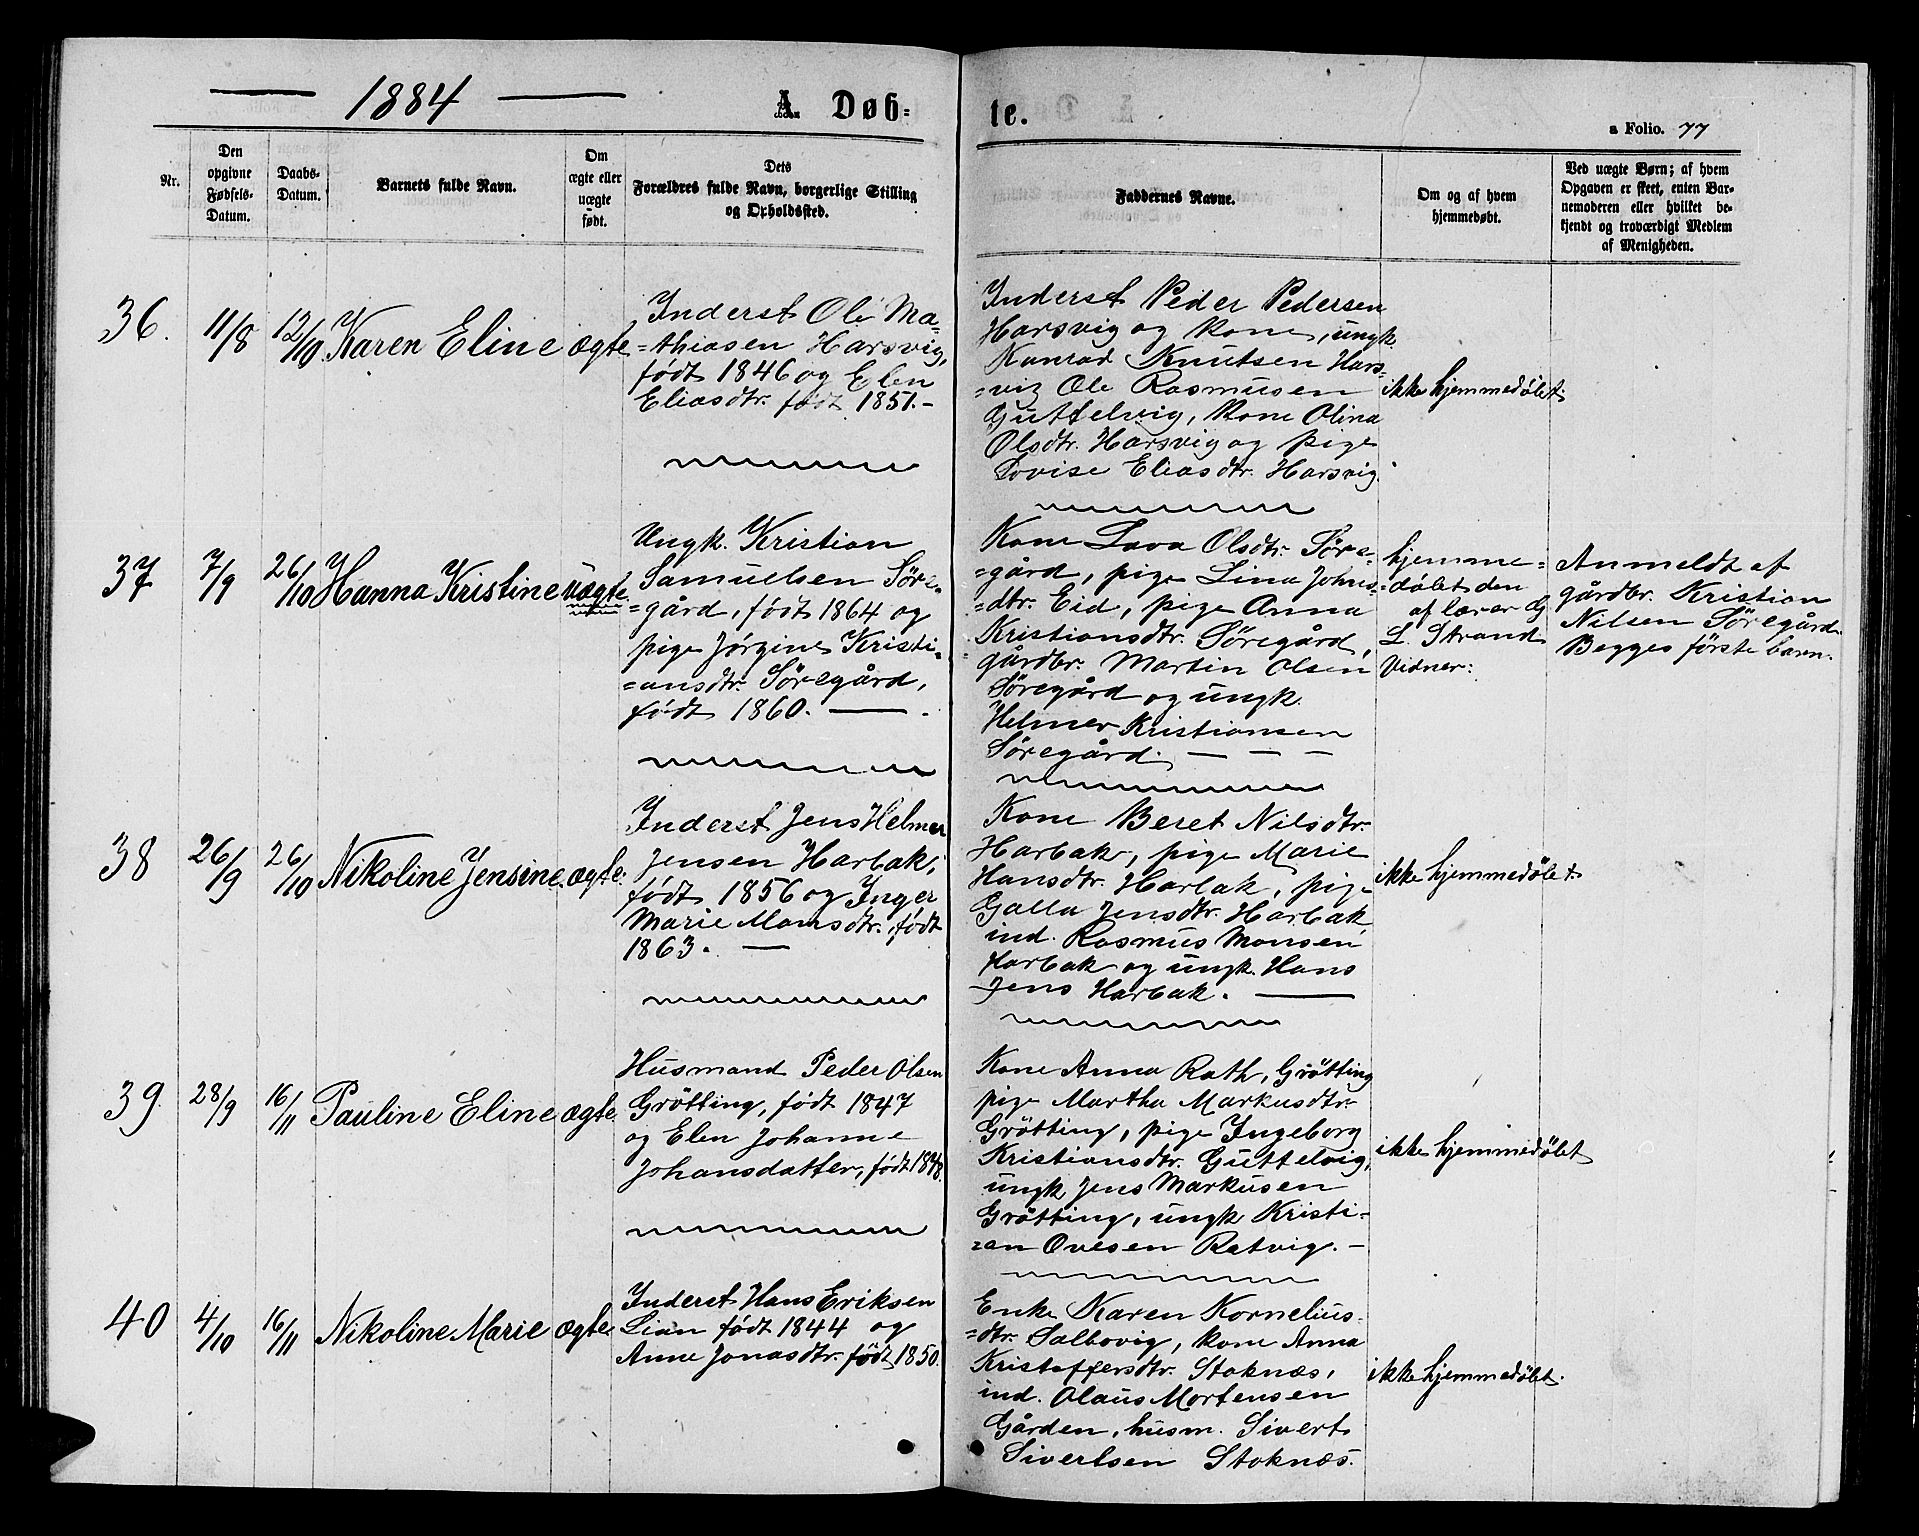 1884
A. Døb=
te.
a Folio. 77
Nr.
Den
opgivne
Fødsels-
Datum.
Daabs-
Datum.
Barnets fulde Navn.
Om
ægte eller
uægte
født.
Dets
Forældres fulde Navn, borgerlige Stilling
og Opholdssted.
Faddernes Navne.
Om og af hvem
hjemmedøbt.
Ved uægte Børn; af hvem
Opgaven er skeet, enten Bar-
nemoderen eller hvilket be-
kjendt og troværdigt Medlem
af Menigheden.
36. 11/8 12/10 Karen Eline ægte
Inderst Ole Ma=
=thiasen Harsvig,
født 1846 og Elen
Eliasdtr. født 1851.-
Inderst Peder Pedersen
Harsvig og kone, ungk.
Konrad Knutsen Hars=
=vig Ole Rasmusen
Guttelvig, kone Olina
Olsdtr. Harsvig og pige
Lovise Eliasdtr. Harsvig.
ikke hjemmedøbt.
37 7/9 26/10 Hanna Kristine uægte.
Ungk. Kristian
Samuelsen Søre=
=gård, født 1864 og
pige Jørgine Kristi=
=ansdtr. Søregård,
født 1860. —
Kone Lava Olsdtr. Søre=
=gård, pige Lina Johns=
=dtr. Eid, pige Anna
Kristiansdtr. Søregård,
gårdbr. Martin Olsen
Søregård og ungk.
Helmer Kristiansen
Søregård. — — —
hjemme=
=døbt den
af lærer G.
L. Strand
Vidner:
Anmeldt af
gårdbr. Kristian
Nilsen Søregård.
Begges første barn.
38 26/9 26/10 Nikoline Jensine. ægte.
Inderst Jens Helmer
Jensen Harbak,
født 1856 og Inger
Marie Monsdtr. født
1863. —
Kone Beret Nilsdtr.
Harbak, pige Marie
Hansdtr. Harbak, pige
Galla Jensdtr. Harbak
ind. Rasmus Monsen
Harbak og ungk. Hans
Jens Harbak. —
ikke hjemmedøbt.
39. 28/9 16/11 Pauline Eline ægte.
Husmand Peder Olsen
Grøtting, født 1847
og Elen Johanne
Johansdatter, født 1848.
Kone Anna Rath, Grøtting
pige Martha Markusdtr.
Grøtting, pige Ingeborg
Kristiansdtr. Guttelvig,
ungk Jens Markusen
Grøtting, ungk Kristi=
=an Ovesen Ratvig. —
ikke hjemmedøbt
40 4/10 16/11 Nikoline Marie ægte.
Inderst Hans Eriksen
Lian født 1844 og
Anne Jonasdtr. født 1850.
Enke Karen Kornelius=
=dtr. Salbovig, kone Anna
Kristoffersdtr. Stoknæs,
ind. Olaus Mortensen
Gården, husm. Sivert
Sivertsen Stoknæs.
ikke hjemmedøbt.